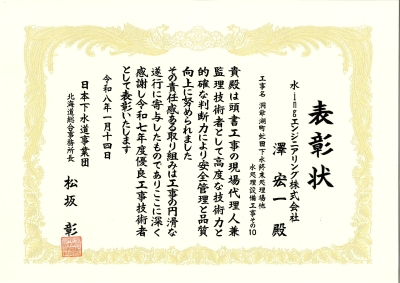 表彰状
水ingエンジニアリング株式会社
澤 宏一 殿
工事名 洞爺湖町虻田下水終末処理場他
水処理設備工事その10
貴殿は頭書工事の現場代理人兼
監理技術者として高度な技術力と
的確な判断力により安全管理と品質
向上に努められました
その責任感ある取り組みは工事の円滑な
遂行に寄与したものでありここに深く
感謝し令和七年度優良工事技術者
として表彰いたします
令和八年一月十四日
日本下水道事業団
北海道総合事務所長
松坂 彰